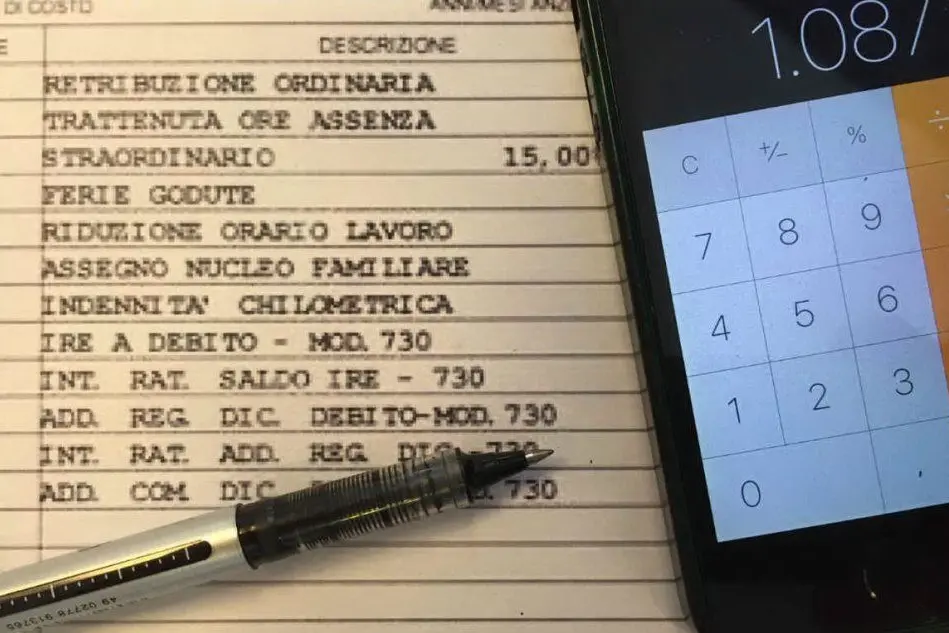 DI COSTO
DESCRIZIONE
RETRIBUZIONE ORDINARIA
TRATTENUTA ORE ASSENZA
STRAORDINARIO 15,00
FERIE GODUTE
RIDUZIONE ORARIO LAVORO
ASSEGNO NUCLEO FAMILIARE
INDENNITA' CHILOMETRICA
IRE A DEBITO - MOD. 730
INT. RAT. SALDO IRE - 730
ADD. REG. DIC. DEBITO-MOD. 730
INT. RAT. ADD. REG. DIC. 730
ADD. COM. DIC. 730
49 02778 913765
1.087
C +/- % ÷
7 8 9
4 5 6
1 2 3
0 ,